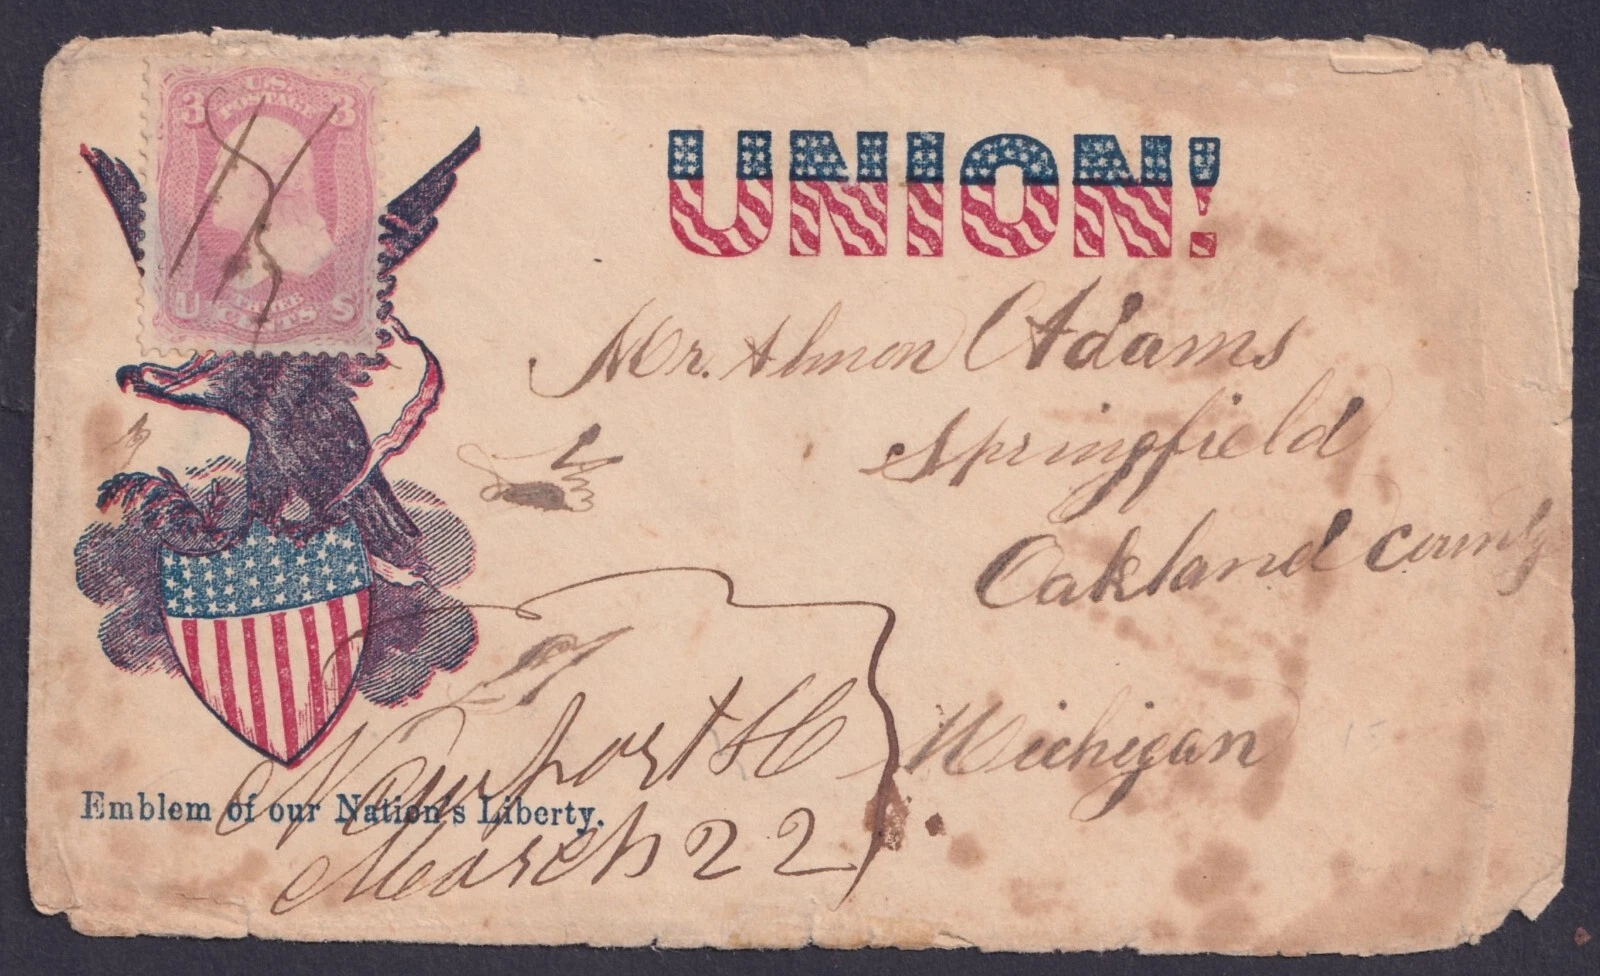 U.S.
POSTAGE
3 3
U S
THREE
CENTS
UNION!
Mr. Almon Adams
Springfield
Oakland County
Michigan
Emblem of our Nation's Liberty.
Newport
March 22